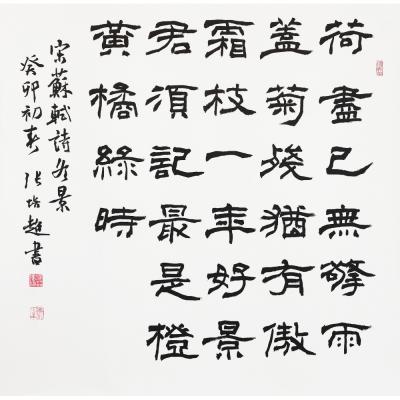 荷盡已無擎雨
蓋菊殘猶有傲
霜枝一年好景
君須記最是橙
黃橘綠時
宋蘇軾詩冬景
癸卯初春 张培超書